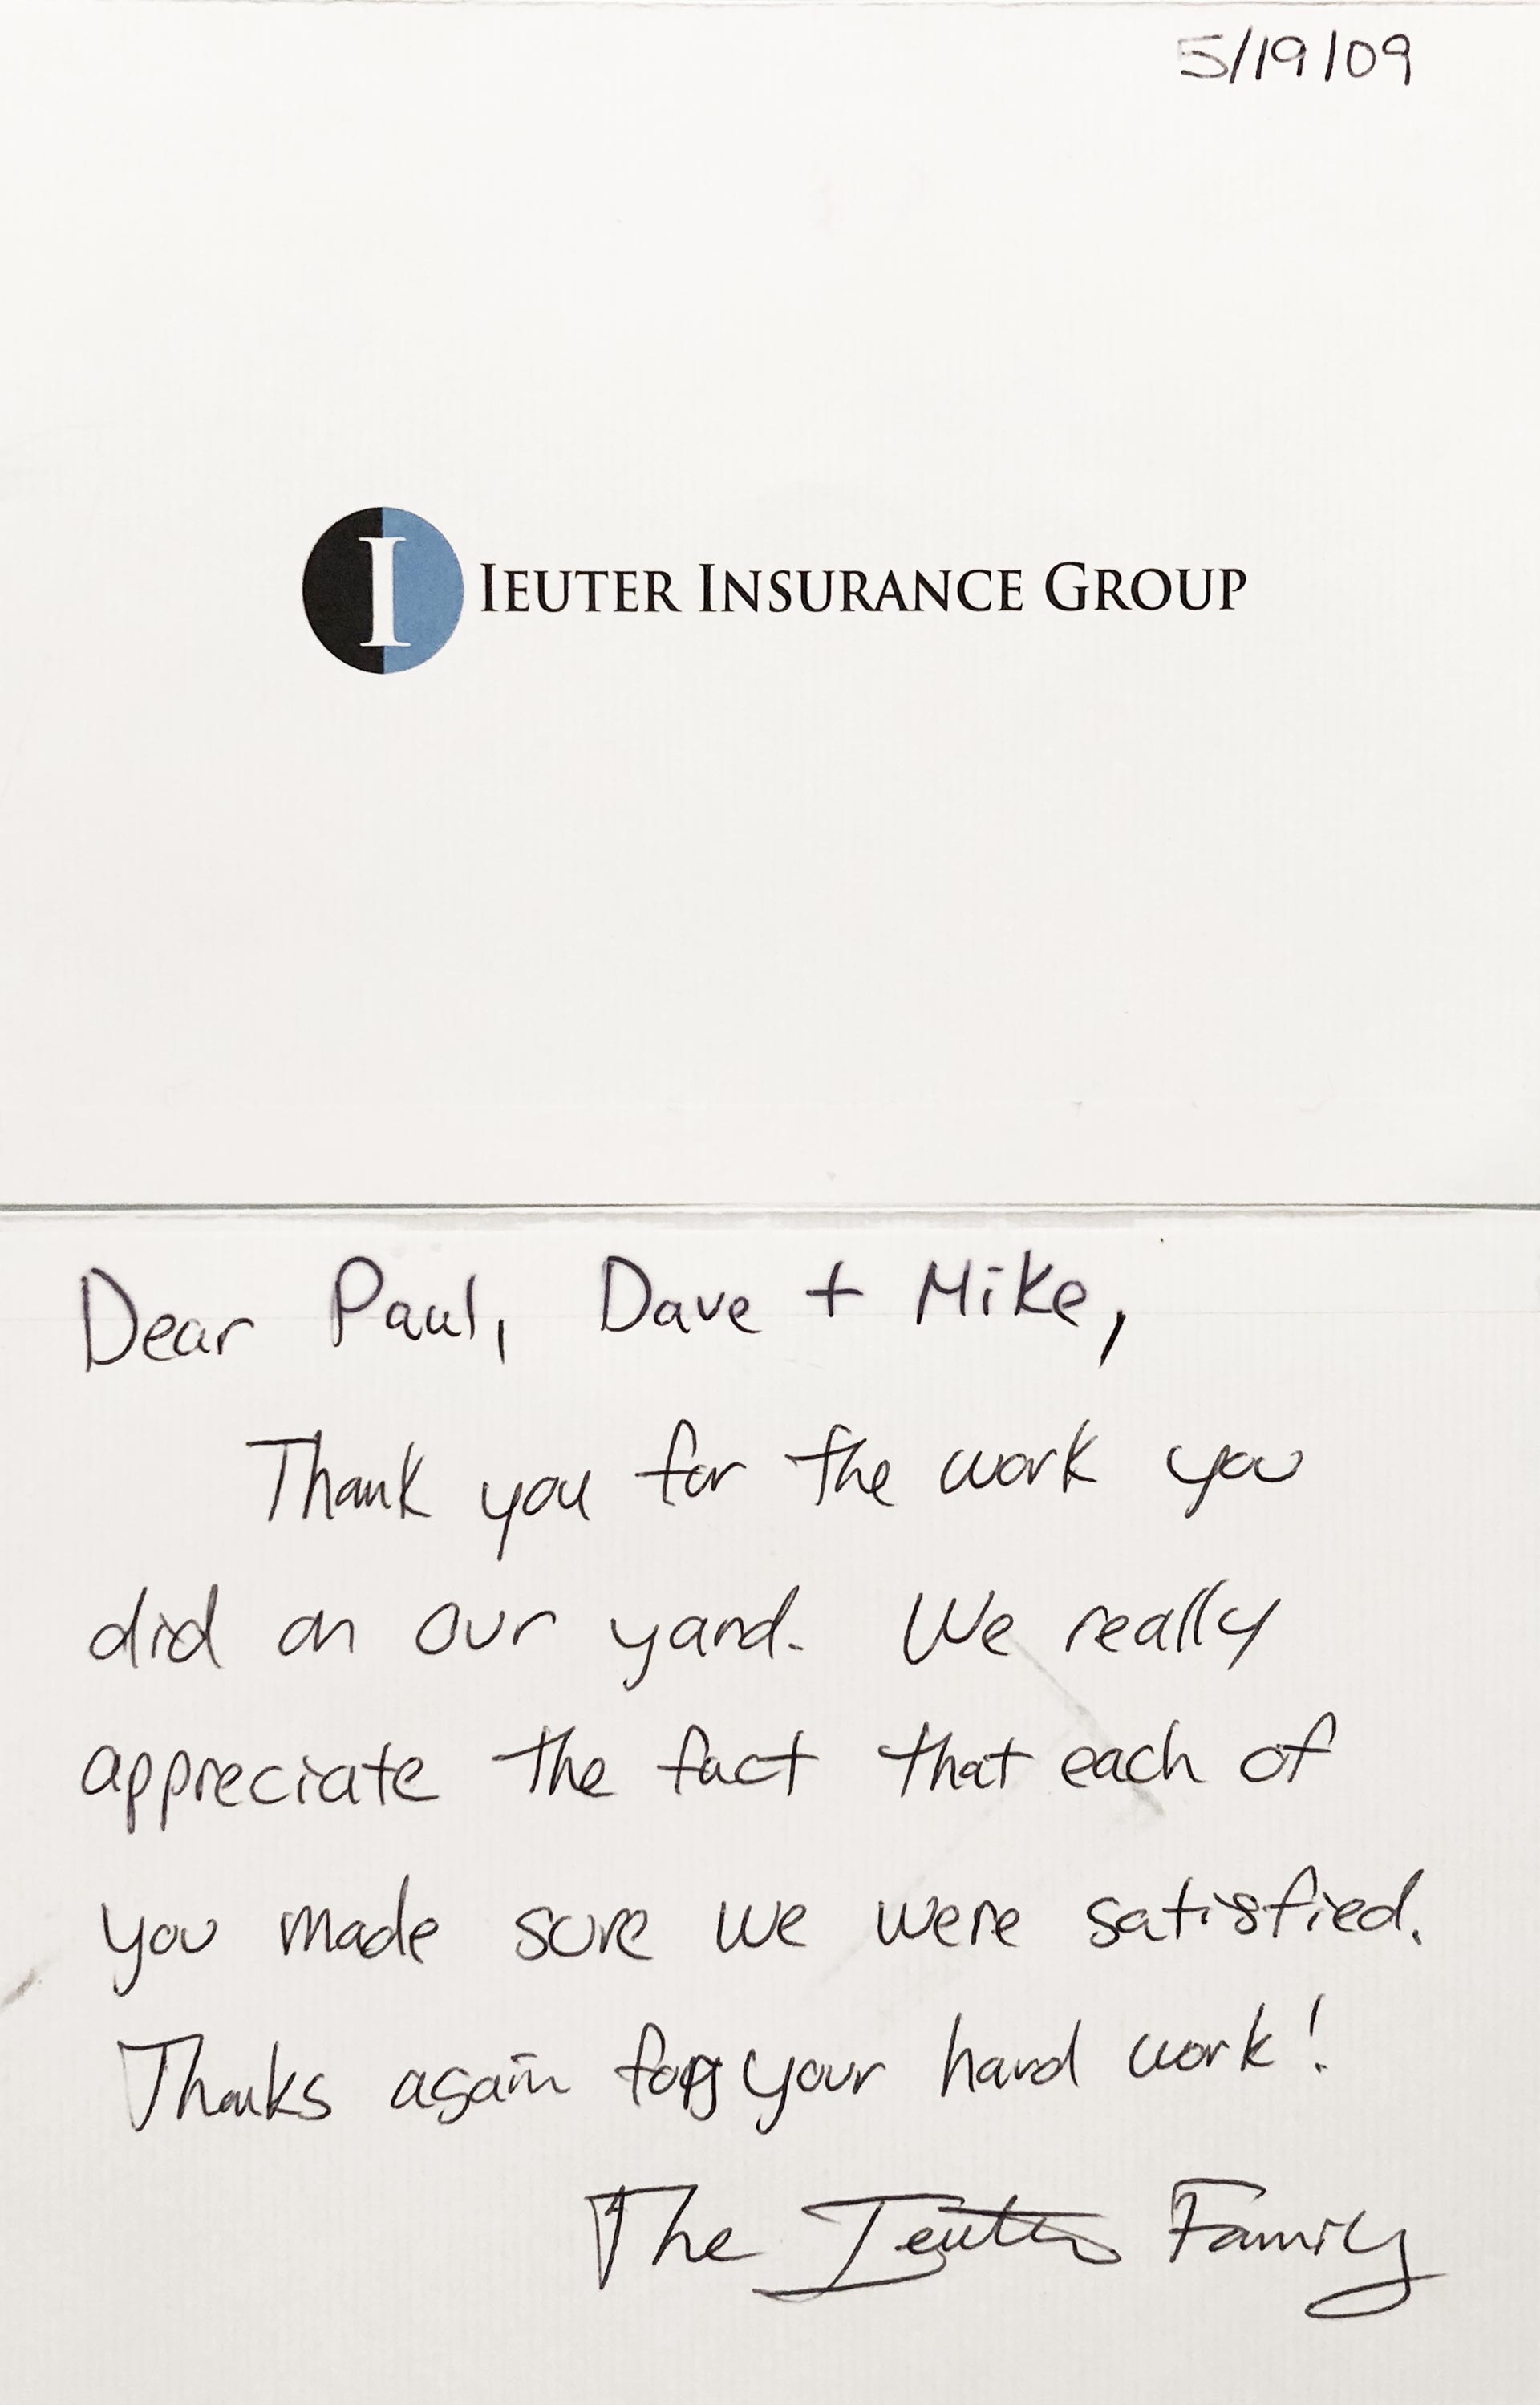 5/19/09
I IEUTER INSURANCE GROUP
Dear Paul, Dave + Mike,
Thank you for the work you
did on our yard. We really
appreciate the fact that each of
you made sure we were satisfied.
Thanks again for your hard work!
The Ieuter Family